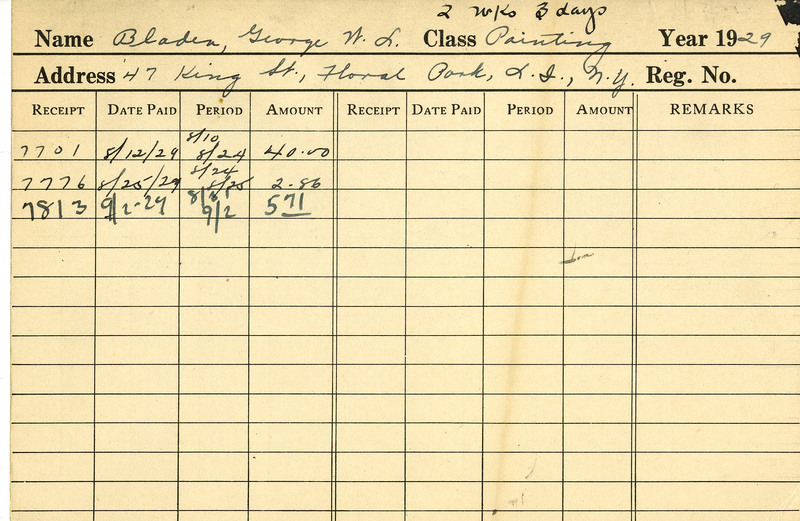 2 wks 3 days
Name Bladen, George W. L. Class Painting Year 1929
Address 47 King St., Floral Park, L.I., N.Y. Reg. No.
RECEIPT DATE PAID PERIOD AMOUNT RECEIPT DATE PAID PERIOD AMOUNT REMARKS
8/10
7701 8/12/29 8/24 40.00
8/24
7776 8/25/29 8/25 2.86
8/31
7813 9/2-29 9/2 5 71